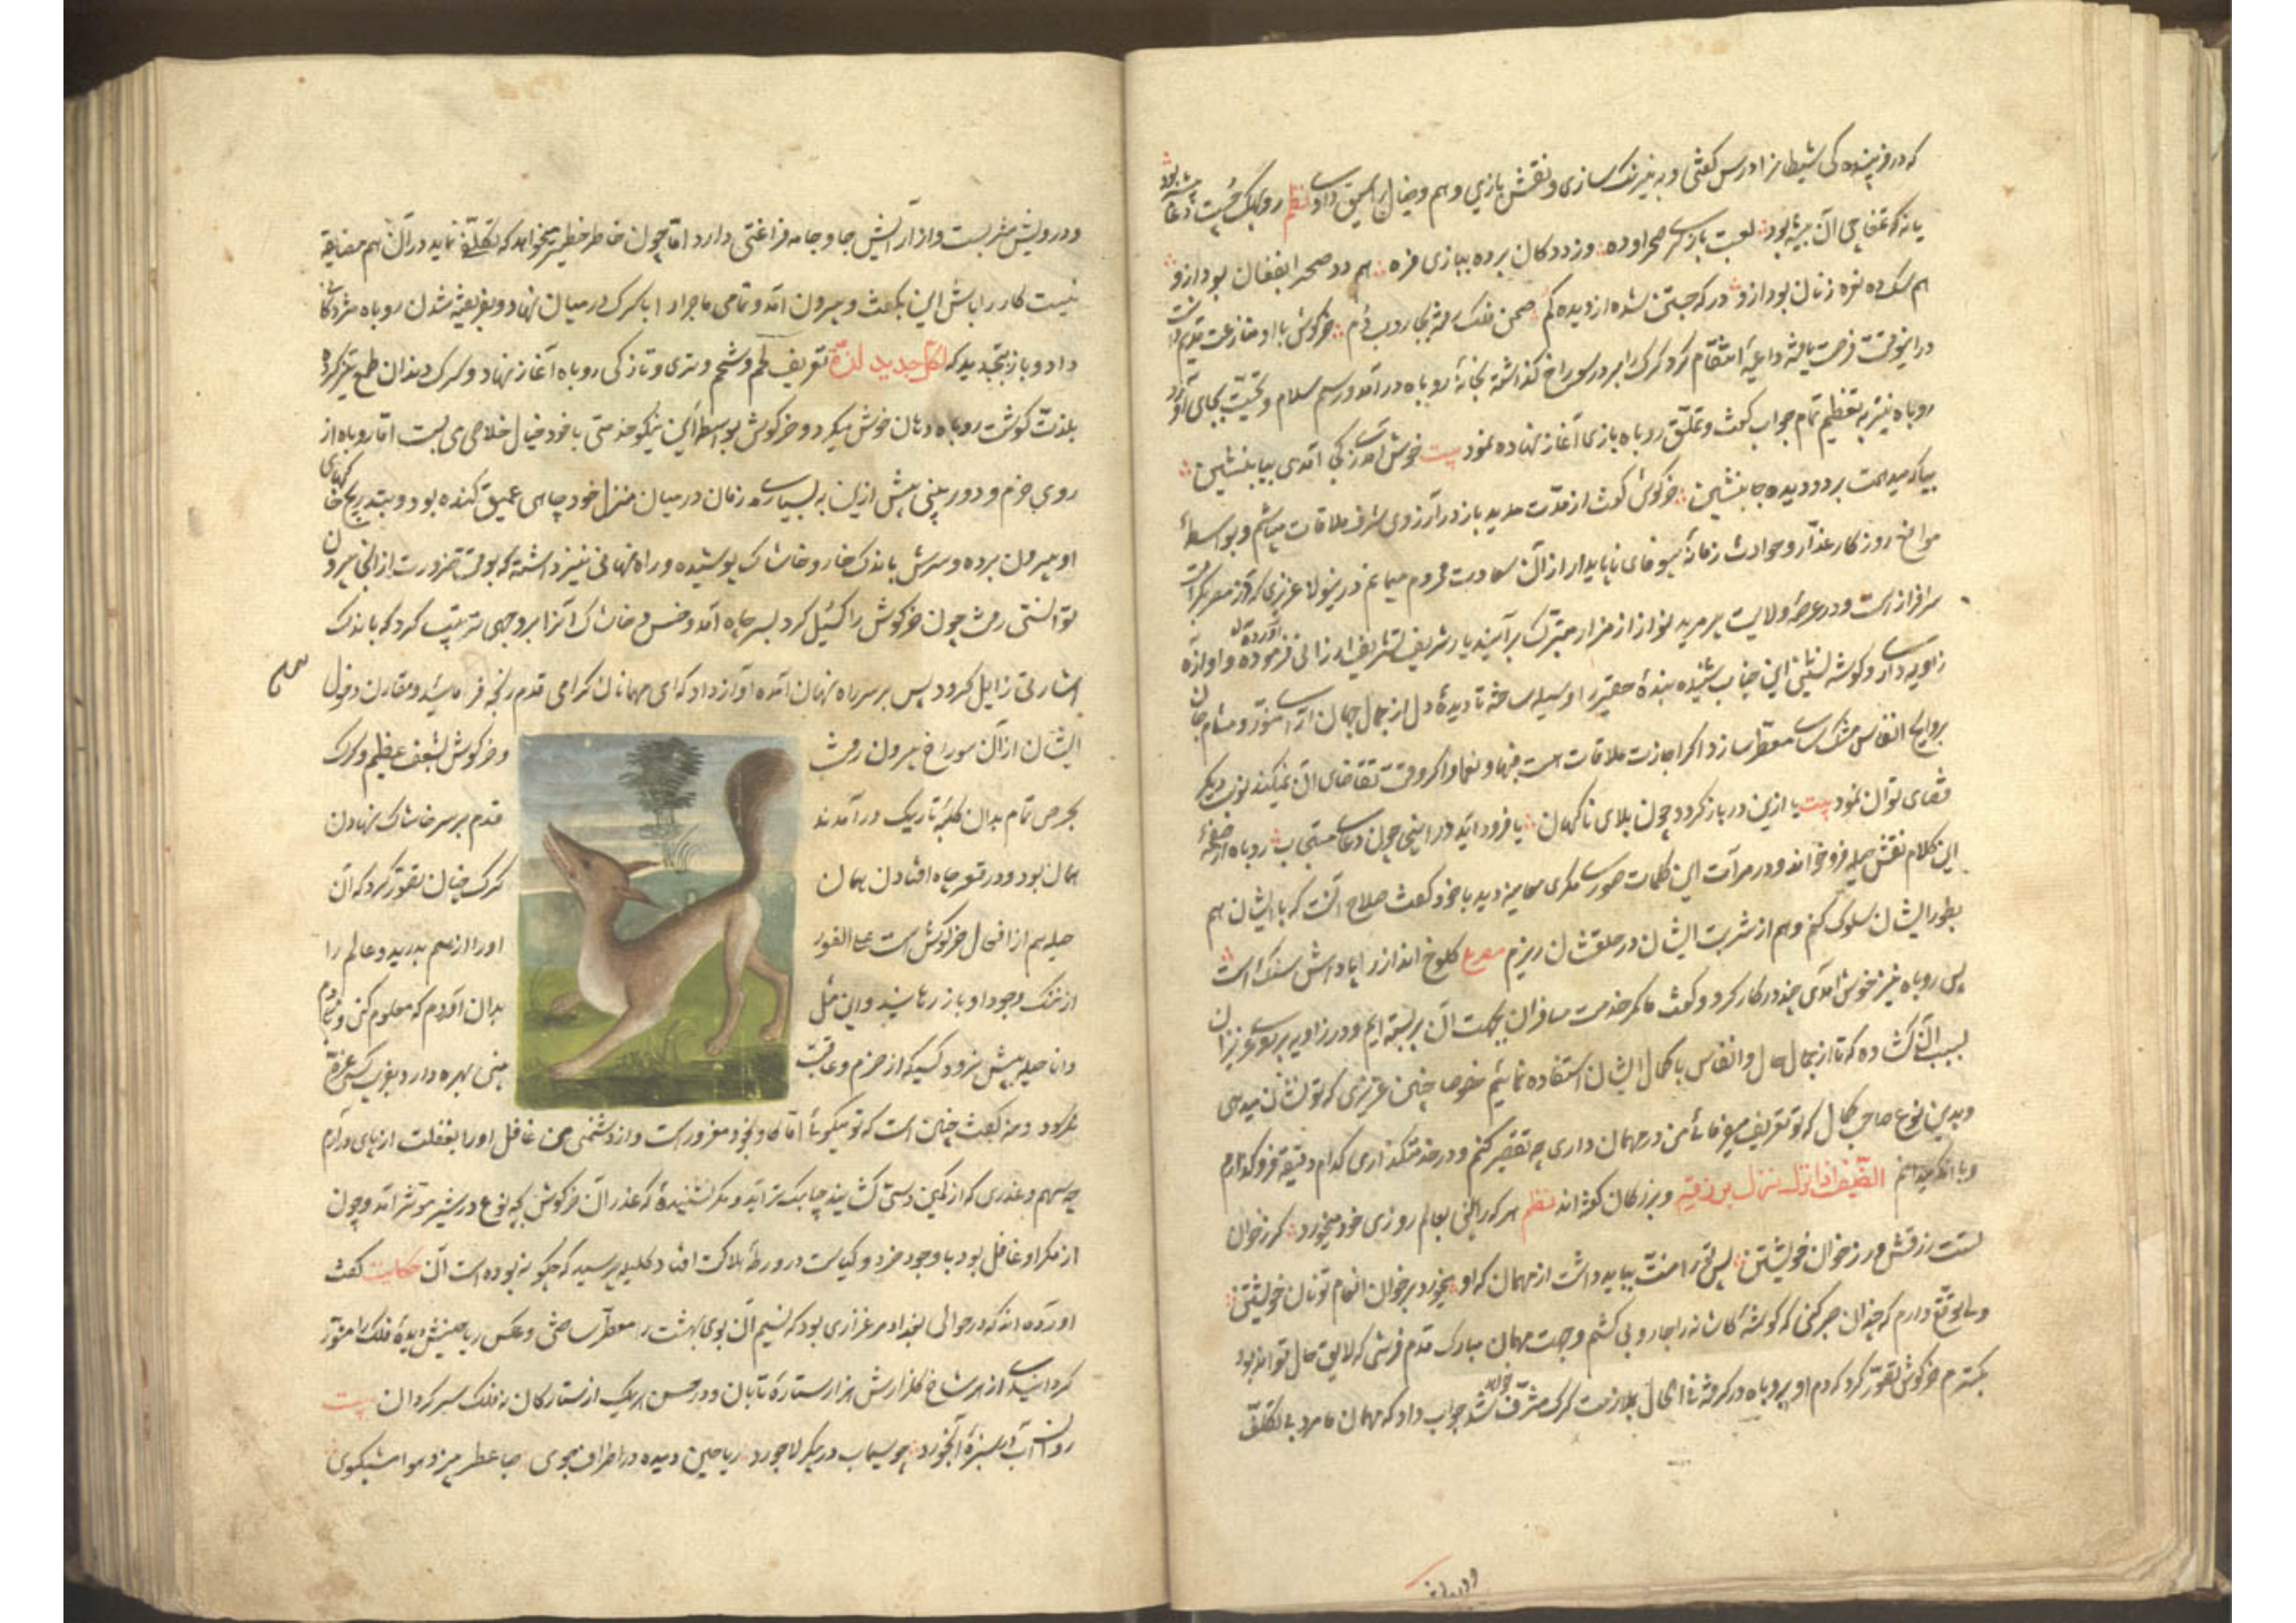 که در فریبندگی شیطانرا درس گفتی و به نیرنک سازی و نقش بازی وهم و خیال را سبق دادی نظم روبهکی چست دغا پیشه بود
یانه که عفاجی آن بیشه بود لعبت بازی کر صحرا و ده وز دد کان برده ببازی فره هم دد صحرا بفغان بود ازو
هم سک ده نعره زنان بود ازو در که جستن شده از دیده کم صحن فلک رفته بجاروب دم خرکوش با او منازعت قدیم داشت
درانوقت فرصت یافته داعیهٔ انتقام کرد کرک را بر در سوراخ کذاشته بخانهٔ روباه در آمد و رسم سلام و تحیت بجای آورد
روباه نیز به تعظیم تمام جواب کفت و تملق روباه بازی آغاز نهاده نمود بیت خوش آمدی ز کجا آمدی بیا بنشین
بیا که میدهمت بر دو دیده جا بنشین خرکوش کفت از مدت مدید باز در آرزوی شرف ملاقات میباشم و بواسطهٔ
موانع روزکار غدار و حوادث زمانهٔ بیوفای ناپایدار از آن سعادت محروم میمانم درینولا عزیزی که در مصر کرامت
سرافراز است و در عرصهٔ ولایت پیر مرید نواز از مزار متبرک برآمده بدیار شریف تشریف ارزانی فرموده و آوازهٔ
زاویه داری و کوشه نشینی این جناب شنیده بندهٔ حقیر را وسیله ساخته تا دیدهٔ دل از جمال جهان آرای منور و مشام جان
بروایح انفاس مشک سای معطر سازد اکر اجازت ملاقات است فبها و نعما و اکر وقت تقاضای آن نمیکند نوبت دیکر
قضای توان نمود بیت یا ازین در باز کردد چون بلای ناکهان یا فرود آید در اینجا چون دعای مستجاب روباه از صفحهٔ
این کلام نقش حیله فرو خواند و در مرآت این کلمات صورت مکری معاینه دید با خود کفت صلاح آنست که با ایشان هم
بطور ایشان سلوک کنم و هم از شربت ایشان در حلقشان ریزم مصرع کلوخ انداز را پاداش سنک است
پس روباه نیز خوش آمدی چند در کار کرد و کفت ما کمر خدمت مسافران بجهت آن بر بسته ایم و در زاویه بر روی عزیزان
بسبب آن کشاده که تا از جمال حال و انفاس با کمال ایشان استفاده نمائیم خصوصا چنین عزیزی که تو نشان میدهی
و بدین نوع صاحب کمال که تو تعریف میفرمائی من در مهمان داری چه تقصیر کنم و در خدمتکذاری کدام دقیقه فرو کذارم
و با آنکه میدانم الضیف اذا نزل نزل برزقه و بزرکان کفته اند نظم هر که را بینی بعالم روزی خود میخورد کر ز خوان
تست رزقش ور ز خوان خویشتن پس ترا منت بباید داشت از مهمان که او میخورد بر خوان انعام تو نان خویشتن
ولی توقع دارم که چندان صبر کنی که کوشهٔ کاشانه را جاروبی کشم و جهت مهمان مبارک قدم فرشی که لایق حال تواند بود
بکسترم خرکوش تصور کرد که دم او بروباه در کرفته فی الحال بملازمت کرک مشرف خواهد شد جواب داد که مهمان مرد بی تکلف
و درویش مشربست و از آرایش جا و جامه فراغتی دارد اما چون خاطر خطیر میخواهد که تکلف نماید در آن هم مضایقه
نیست کار را باش این بکفت و بیرون آمد و تمامی ماجرا را با کرک در میان نهاد و بفریفته شدن روباه مژدکانی
داد و باز بتجدید که لکل جدید لذة تعریف لحم و شحم و تری و تازکی روباه آغاز نهاد و کرک دندان طمع تیز کرده
بلذت کوشت روباه دهان خوش میکرد و خرکوش بواسطهٔ این نیکو خدمتی با خود خیال خلاصی می بست اما روباه از
روی حزم و دور بینی پیش ازین به بسیاری زمان در میان منزل خود چاهی عمیق کنده بود و بتدریج خاکهای
او بیرون برده و سرش باندک خار و خاشاک پوشیده و راه نهانی نیز داشته که بوقت ضرورت از انجا بیرون
توانستی رفت چون خرکوش را کسیل کرد بسر چاه آمد و خس و خاشاک آنرا بر وجهی ترتیب کرد که باندک
اشارتی زایل کردد پس بر سر راه نهان آمده آواز داد که ای مهمانان کرامی قدم رنجه فرمائید و مقارن دخول
ایشان از آن سوراخ بیرون رفت و خرکوش بشعف عظیم و کرک
بحرص تمام بدان کلبهٔ تاریک در آمدند قدم بر سر خاشاک نهادن
همان بود و در قعر چاه افتادن همان کرک چنان تصور کرد که آن
حیله هم از افعال خرکوش است علی الفور او را از هم بدرید و عالم را
از ننک وجود او باز رهانید و این مثل بدان آوردم که معلوم کنی و با مردم
دانا حیله پیش نرود کسیکه از حزم و عاقبت بینی بهره دارد بفریب کسی غره
نکردد دمنه کفت چنین است که تو میکوئی اما کاو بخود مغرور است و از دشمنی من غافل او را بغفلت از پای در آرم
چه سهم غدری که از کمین دوستی کشایند چابک تر آید و مکر نشنیدهٔ که غدر آن خرکوش بچه نوع در شیر موثر آمد و چون
از مکر او غافل بود با وجود خرد و کیاست در ورطهٔ هلاکت افتاد کلیله پرسید که چکونه بوده است آن حکایت کفت
آورده اند که در حوالی بغداد مرغزاری بود که نسیم آن بوی بهشت را معطر ساختی و عکس ریاحینش دیدهٔ فلک را منور
کردانیدی از هر شاخ کلزارش هزار ستارهٔ تابان و در حسن هر یک از ستارکان نه فلک سرکردان بیت
روان آب در سبزهٔ آبخورد چو سیماب در پیکر لاجورد ریاحین دمیده در اطراف جوی صبا عطر بیز و هوا مشکبوی
ودرویش